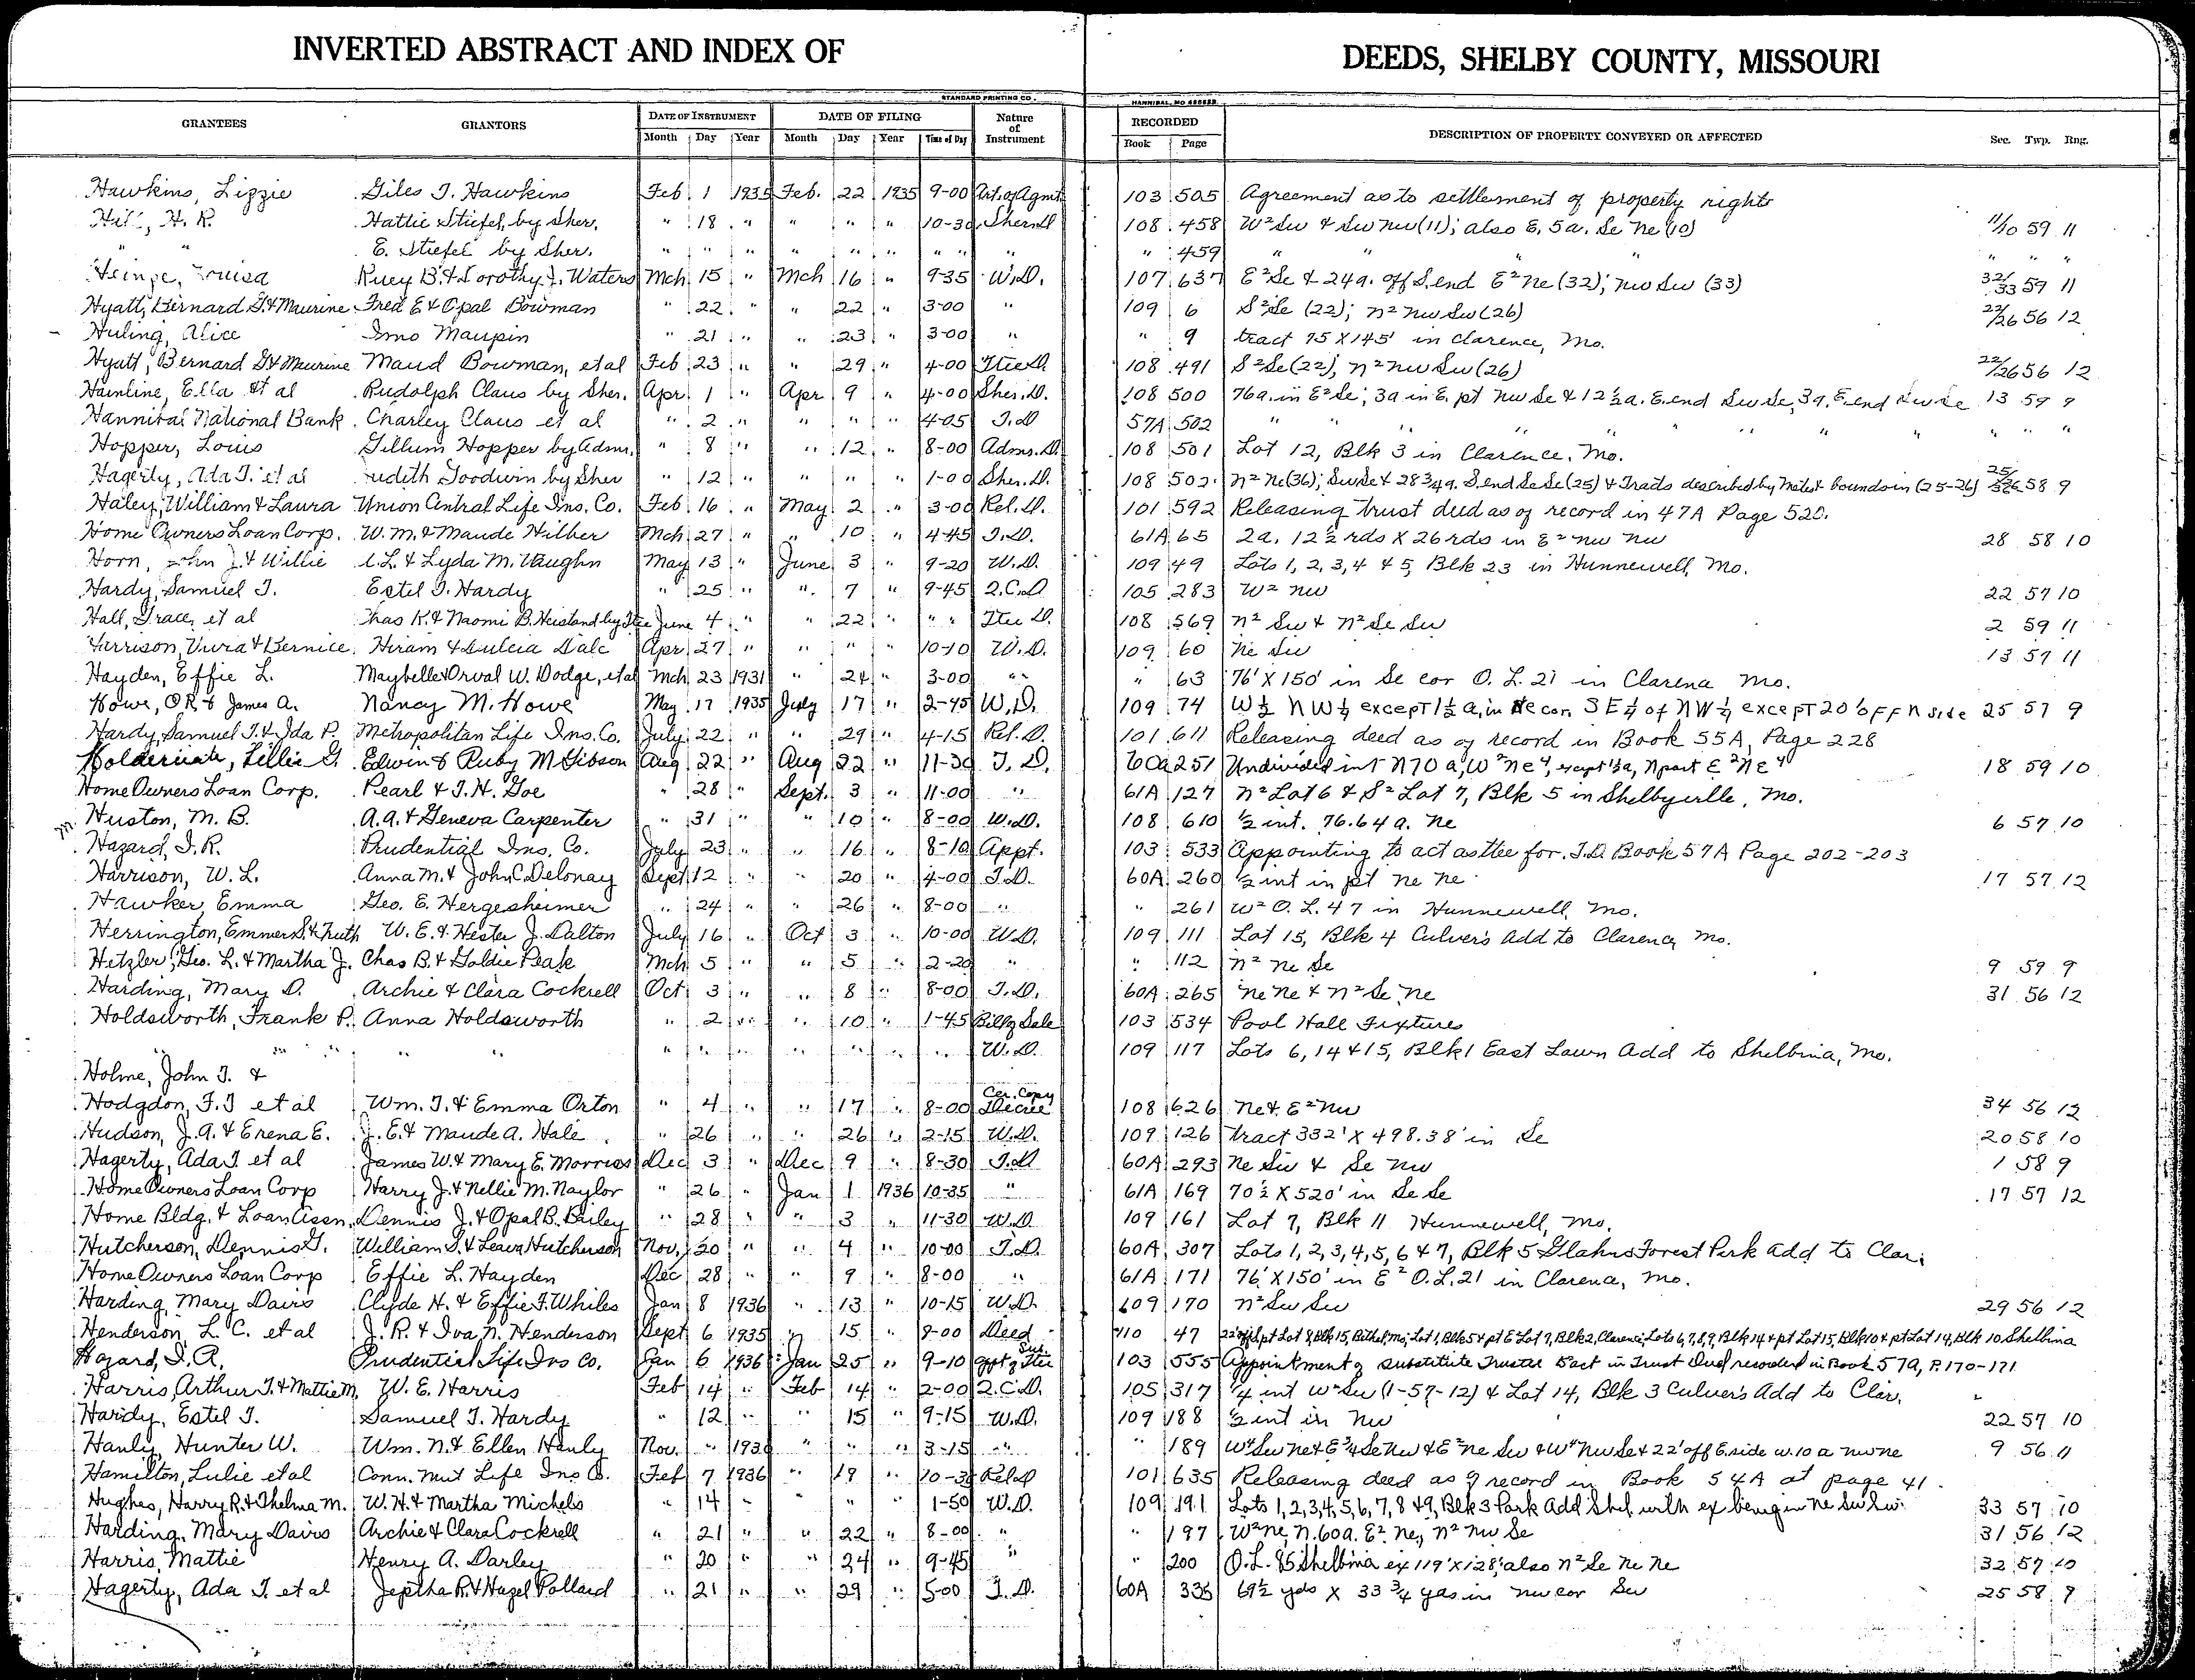 INVERTED ABSTRACT AND INDEX OF DEEDS, SHELBY COUNTY, MISSOURI
STANDARD PRINTING CO. HANNIBAL, MO
GRANTEES GRANTORS DATE OF INSTRUMENT DATE OF FILING Nature of Instrument RECORDED DESCRIPTION OF PROPERTY CONVEYED OR AFFECTED Sec. Twp. Rng.
Month Day Year Month Day Year Time of Day Book Page
Hawkins, Lizzie Giles T. Hawkins Feb 1 1935 Feb. 22 1935 9-00 Art. of Agmt. 103 505 Agreement as to settlement of property rights
H. R. Hattie Stiefel, by Sher. " 18 " " " " 10-30 Sher. D 108 458 W² Sw & Sw Nw (11); also E. 5a. Se Ne (10) 11/10 59 11
" " E. Stiefel by Sher. " " " " " " " " " 459 " " " " " "
Louisa Ruey B. & Dorothy J. Waters Mch 15 " Mch 16 " 9-35 W.D. 107 637 E² Se & 24a. off S. end E² Ne (32); Nw Sw (33) 32/33 59 11
Hyatt, Bernard G. & Maurine Fred E & Opal Bowman " 22 " " 22 " 3-00 " 109 6 S² Se (22); N² Nw Sw (26) 22/26 56 12
Huling, Alice Imo Maupin " 21 " " 23 " 3-00 " " 9 tract 75 X 145' in Clarence, Mo.
Hyatt, Bernard G & Maurine Maud Bowman, et al Feb 23 " " 29 " 4-00 Ttee D. 108 491 S² Se (22), N² Nw Sw (26) 22/26 56 12
Hainline, Ella et al Rudolph Claus by Sher. Apr 1 " Apr 9 " 4-00 Sher. D. 108 500 76a. in E² Se; 3a in E. pt Nw Se & 12½a. E. end Sw Se, 3a. E. end Sw Se 13 59 9
Hannibal National Bank Charley Claus et al " 2 " " " " 4-05 T.D 57A 502 " " " " " " " " " "
Hopper, Louis Gillum Hopper by Adms. " 8 " " 12 " 8-00 Adms. D. 108 501 Lot 12, Blk 3 in Clarence, Mo.
Hagerty, Ada T. et al Judith Goodwin by Sher " 12 " " " " 1-00 Sher. D. 108 502 N² Ne (36); Sw Se & 28¾a. S. end Se Se (25) & Tracts described by metes & bounds in (25-26) 58 9
Haley, William & Laura Union Central Life Ins. Co. Feb 16 " May 2 " 3-00 Rel. D. 101 592 Releasing trust deed as of record in 47A Page 520.
Home Owners Loan Corp. W. M. & Maude Hilber Mch 27 " " 10 " 4-45 T.D. 61A 65 2a. 12½ rds X 26 rds in E² Nw Nw 28 58 10
Horn, John J. & Willie C. L. & Lyda M. Vaughn May 13 " June 3 " 9-20 W.D. 109 49 Lots 1, 2, 3, 4 & 5, Blk 23 in Hunnewell, Mo.
Hardy, Samuel T. Estel T. Hardy " 25 " " 7 " 9-45 Q.C.D. 105 283 W² Nw 22 57 10
Hall, Grace, et al Chas K. & Naomi B. Heistand by Ttee June 4 " " 22 " " " Ttee D. 108 569 N² Sw & N² Se Sw 2 59 11
Harrison, Vivia & Bernice Hiram & Dulcia Dale Apr 27 " " " " 10-10 W.D. 109 60 Ne Sw 13 57 11
Hayden, Effie L. Maybelle & Orval W. Dodge, et al Mch 23 1931 " 24 " 3-00 " " 63 76' X 150' in Se cor O. L. 21 in Clarence Mo.
Howe, O.R. & James A. Nancy M. Howe May 17 1935 July 17 " 2-45 W.D. 109 74 W½ NW¼ except 1½ a. in Ne cor. SE¼ of NW¼ except 20' off N side 25 57 9
Hardy, Samuel T. & Ida P. Metropolitan Life Ins. Co. July 22 " " 29 " 4-15 Rel. D. 101 611 Releasing deed as of record in Book 55A, Page 228
Lillie G. Edwin & Ruby M Gibson Aug 22 " Aug 22 " 11-30 T. D. 60a 251 Undivided int N 70 a, W² Ne 4, except ½a, N part E² NE 4 18 59 10
Home Owners Loan Corp. Pearl & T. H. Goe " 28 " Sept. 3 " 11-00 " 61A 127 N² Lot 6 & S² Lot 7, Blk 5 in Shelbyville, Mo.
Huston, M. B. A. A. & Geneva Carpenter " 31 " " 10 " 8-00 W.D. 108 610 ½ int. 76.64 a. Ne 6 57 10
Hazard, I. R. Prudential Ins. Co. July 23 " " 16 " 8-10 Appt. 103 533 Appointing to act as ttee for T.D. Book 57A Page 202-203
Harrison, W. L. Anna M. & John C Delonay Sept 12 " " 20 " 4-00 T.D. 60A 260 ½ int in pt Ne Ne 17 57 12
Hawker, Emma Geo. E. Hergesheimer " 24 " " 26 " 8-00 " " 261 W² O. L. 47 in Hunnewell, Mo.
Herrington, Emmer S. & Ruth W. E. & Hester J. Dalton July 16 " Oct 3 " 10-00 W.D. 109 111 Lot 15, Blk 4 Culver's Add to Clarence, Mo.
Hetzler, Geo. L. & Martha J. Chas B. & Goldie Peak Mch 5 " " 5 " 2-20 " " 112 N² Ne Se 9 59 9
Harding, Mary D. Archie & Clara Cockrell Oct 3 " " 8 " 8-00 T.D. 60A 265 Ne Ne & N² Se Ne 31 56 12
Holdsworth, Frank P. Anna Holdsworth " 2 " " 10 " 1-45 Bill of Sale 103 534 Pool Hall Fixtures
" " " " " " " " " " " " W.D. 109 117 Lots 6, 14 & 15, Blk 1 East Lawn Add to Shelbina, Mo.
Holme, John T. &
Hodgdon, F.T et al Wm. T. & Emma Orton " 4 " " 17 " 8-00 Cer. Copy Decree 108 626 Ne & E² Nw 34 56 12
Hudson, J. A. & Erena E. J. E. & Maude A. Hale " 26 " " 26 " 2-15 W.D. 109 126 Tract 332' X 498.38' in Se 20 58 10
Hagerty, Ada T. et al James W. & Mary E. Morriss Dec 3 " Dec 9 " 8-30 T.D 60A 293 Ne Sw & Se Nw 1 58 9
Home Owners Loan Corp Harry J. & Nellie M. Naylor " 26 " Jan 1 1936 10-35 " 61A 169 70½ X 520' in Se Se 17 57 12
Home Bldg. & Loan Assn. Dennis J. & Opal B. Bailey " 28 " " 3 " 11-30 W.D 109 161 Lot 7, Blk 11 Hunnewell, Mo.
Hutcherson, Dennis G. William S. & Leava Hutcherson Nov. 20 " " 4 " 10-00 T.D. 60A 307 Lots 1, 2, 3, 4, 5, 6 & 7, Blk 5 Glahns Forest Park Add to Clar.
Home Owners Loan Corp Effie L. Hayden Dec 28 " " 9 " 8-00 " 61A 171 76' X 150' in E² O.L. 21 in Clarence, Mo.
Harding, Mary Davis Clyde H. & Effie F. Whiles Jan 8 1936 " 13 " 10-15 W.D. 109 170 N² Sw Sw 29 56 12
Henderson, L. C. et al J. R. & Iva N. Henderson Sept 6 1935 " 15 " 8-00 Deed 110 47 Lot 8, Blk 15, Bethel, Mo; Lot 1, Blk 5 & pt E Lot 7, Blk 2, Clarence; Lots 6, 7, 8, 9, Blk 14 & pt Lot 15, Blk 10 & pt Lot 14, Blk 10 Shelbina
Hazard, I. A. Prudential Life Ins Co. Jan 6 1936 Jan 25 " 9-10 Appt of Sub Ttee 103 555 Appointment of substitute Trustee to act in Trust Deed recorded in Book 57A, P. 170-171
Harris, Arthur T. & Mattie M. W. E. Harris Feb 14 " Feb 14 " 2-00 Q.C.D. 105 317 ¼ int W² Sw (1-57-12) & Lot 14, Blk 3 Culver's Add to Clar.
Hardy, Estel T. Samuel T. Hardy " 12 " " 15 " 9-15 W.D. 109 188 ½ int in Nw 22 57 10
Hanly, Hunter W. Wm. N. & Ellen Hanly Nov. " 193 " " " 3-15 " " 189 W⁴ Sw Ne & E¾ Se Nw & E² Ne Sw & W⁴ Nw Se & 22' off E. side W. 10 a Nw Ne 9 56 11
Hamilton, Lulie et al Conn. Mut Life Ins Co. Feb 7 1936 " 19 " 10-30 Rel D 101 635 Releasing deed as of record in Book 54A at page 41.
Hughes, Harry R. & Thelma M. W. H. & Martha Michels " 14 " " " " 1-50 W.D. 109 191 Lots 1, 2, 3, 4, 5, 6, 7, 8 & 9, Blk 3 Park Add Shel. with ex being in Ne Sw Sw 33 57 10
Harding, Mary Davis Archie & Clara Cockrell " 21 " " 22 " 8-00 " " 197 W² Ne, N. 60a. E² Ne, N² Nw Se 31 56 12
Harris, Mattie Henry A. Darley " 20 " " 24 " 9-45 " " 200 O. L. 85 Shelbina ex 119' X 128', also N² Se Ne Ne 32 57 10
Hagerty, Ada T. et al Jeptha R. & Hazel Pollard " 21 " " 29 " 5-00 T.D. 60A 335 69½ yds X 33¾ yds in Nw cor Sw 25 58 9